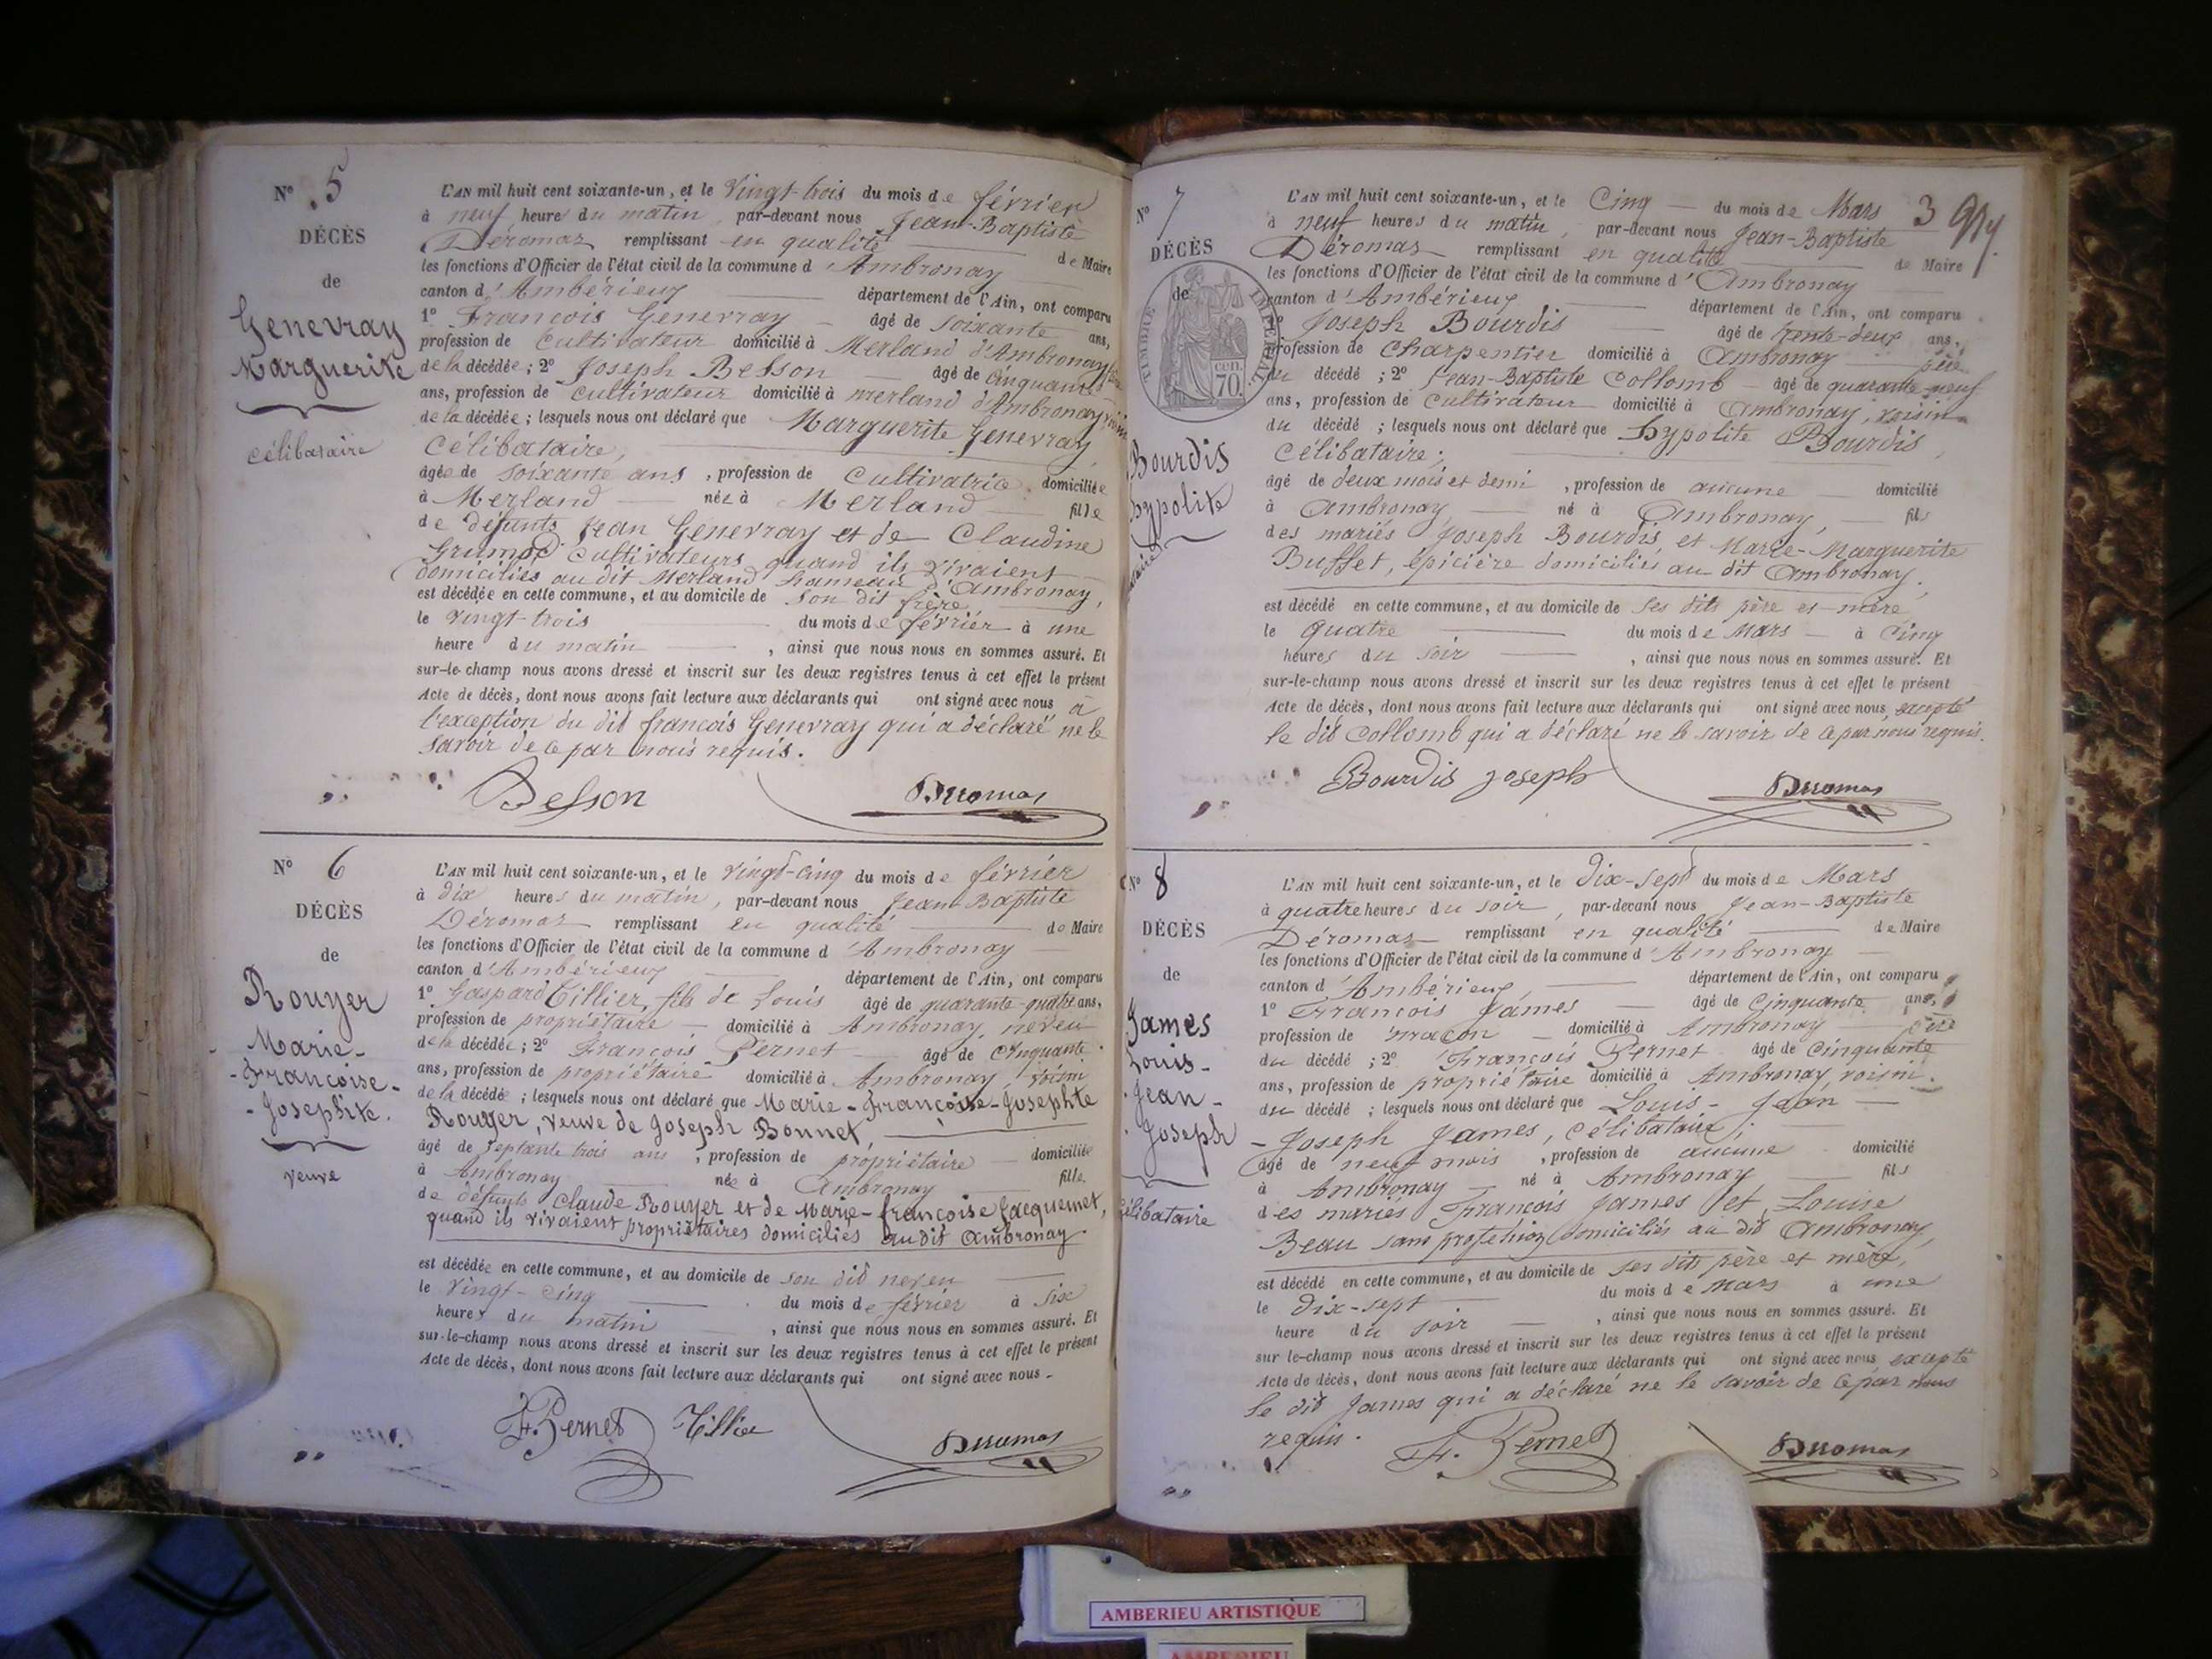 N° 5
DÉCÈS
de
Genevray
Marguerite
célibataire
L'AN mil huit cent soixante-un, et le Vingt-trois du mois de février
à neuf heure du matin, par-devant nous Jean-Baptiste
Déromas remplissant en qualité de Maire
les fonctions d'Officier de l'état civil de la commune d'Ambronay
canton d'Ambérieux département de l'Ain, ont comparu
1° François Genevray âgé de soixante ans,
profession de cultivateur domicilié à Merland d'Ambronay
de la décédée; 2° Joseph Besson âgé de cinquante
ans, profession de cultivateur domicilié à merland d'Ambronay
de la décédée; lesquels nous ont déclaré que Marguerite Genevray
Célibataire,
âgée de soixante ans, profession de cultivatrice domiciliée
à Merland née à Merland fille
de défunts Jean Genevray et de Claudine
cultivateurs quand ils vivaient
domiciliés au dit Merland hameau d'Ambronay,
est décédée en cette commune, et au domicile de son dit frère
le vingt-trois du mois de février à une
heure du matin, ainsi que nous nous en sommes assuré. Et
sur-le-champ nous avons dressé et inscrit sur les deux registres tenus à cet effet le présent
Acte de décès, dont nous avons fait lecture aux déclarants qui ont signé avec nous à
l'exception du dit françois Genevray qui a déclaré ne le
savoir de ce par nous requis.
Besson Déromas
N° 6
DÉCÈS
de
Rouyer
Marie-
-Françoise-
-Josephte.
veuve
L'AN mil huit cent soixante-un, et le vingt-cinq du mois de février
à dix heures du matin, par-devant nous Jean-Baptiste
Déromas remplissant en qualité de Maire
les fonctions d'Officier de l'état civil de la commune d'Ambronay
canton d'Ambérieux département de l'Ain, ont comparu
1° Gaspard Tillier, fils de Louis âgé de quarante-quatre ans,
profession de propriétaire domicilié à Ambronay, neveu
de la décédée; 2° François Pernet âgé de cinquante
ans, profession de propriétaire domicilié à Ambronay voisin
de la décédée; lesquels nous ont déclaré que Marie-Françoise-Josephte
Rouyer, veuve de Joseph Bonnet,
âgé de septante trois ans, profession de propriétaire domiciliée
à Ambronay née à Ambronay fille
de défunts Claude Rouyer et de Marie-françoise Jacquemet,
quand ils vivaient propriétaires domiciliés audit Ambronay
est décédée en cette commune, et au domicile de son dit neveu
le vingt-cinq du mois de février à six
heures du matin, ainsi que nous nous en sommes assuré. Et
sur-le-champ nous avons dressé et inscrit sur les deux registres tenus à cet effet le présent
Acte de décès, dont nous avons fait lecture aux déclarants qui ont signé avec nous.
F. Pernet Tillier Déromas
3
N° 7
DÉCÈS
de
TIMBRE IMPÉRIAL
70 cen.
Bourdis
hypolite
L'AN mil huit cent soixante-un, et le Cinq du mois de Mars
à neuf heures du matin, par-devant nous Jean-Baptiste
Déromas remplissant en qualité de Maire
les fonctions d'Officier de l'état civil de la commune d'Ambronay
canton d'Ambérieux département de l'Ain, ont comparu
1° Joseph Bourdis âgé de trente-deux ans,
profession de charpentier domicilié à Ambronay père
du décédé; 2° Jean-Baptiste Collomb âgé de quarante-neuf
ans, profession de cultivateur domicilié à Ambronay, voisin
du décédé; lesquels nous ont déclaré que hypolite Bourdis,
Célibataire,
âgé de deux mois et demi, profession de aucune domicilié
à Ambronay né à Ambronay, fils
des mariés Joseph Bourdis et Marie-Marguerite
Buffet, épicière domiciliés au dit Ambronay,
est décédé en cette commune, et au domicile de ses dits père et mère
le quatre du mois de mars à cinq
heures du soir, ainsi que nous nous en sommes assuré. Et
sur-le-champ nous avons dressé et inscrit sur les deux registres tenus à cet effet le présent
Acte de décès, dont nous avons fait lecture aux déclarants qui ont signé avec nous, excepté
le dit Collomb qui a déclaré ne le savoir de ce par nous requis.
Bourdis joseph Déromas
N° 8
DÉCÈS
de
James
Louis-
-Jean-
Joseph
célibataire
L'AN mil huit cent soixante-un, et le dix-sept du mois de Mars
à quatre heures du soir, par-devant nous Jean-Baptiste
Déromas remplissant en qualité de Maire
les fonctions d'Officier de l'état civil de la commune d'Ambronay
canton d'Ambérieux, département de l'Ain, ont comparu
1° François James âgé de cinquante ans,
profession de maçon domicilié à Ambronay père
du décédé; 2° François Pernet âgé de cinquante
ans, profession de propriétaire domicilié à Ambronay, voisin
du décédé; lesquels nous ont déclaré que Louis-Jean-
-Joseph James, célibataire,
âgé de neuf mois, profession de aucune domicilié
à Ambronay né à Ambronay fils
des mariés François James et Louise
Beau sans profession domiciliés au dit Ambronay,
est décédé en cette commune, et au domicile de ses dits père et mère,
le dix-sept du mois de mars à une
heure du soir, ainsi que nous nous en sommes assuré. Et
sur le-champ nous avons dressé et inscrit sur les deux registres tenus à cet effet le présent
Acte de décès, dont nous avons fait lecture aux déclarants qui ont signé avec nous, excepté
le dit James qui a déclaré ne le savoir de ce par nous
requis.
F. Pernet Déromas
AMBERIEU ARTISTIQUE
AMBERIEU